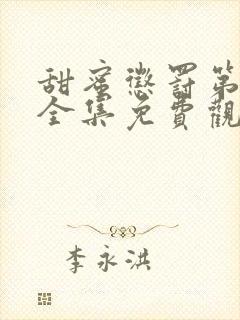 甜蜜懲罰第
全集免費觀
李永洪